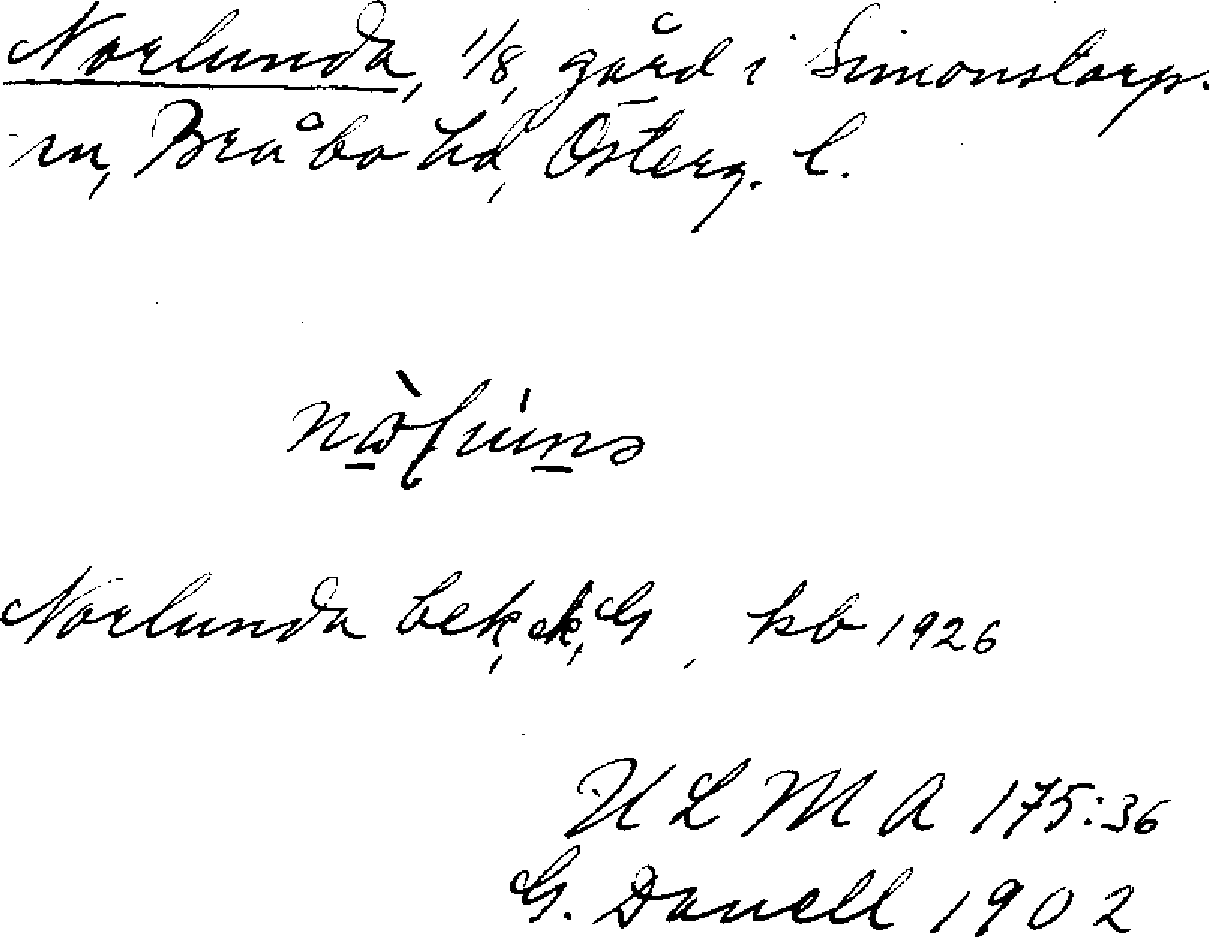 Norlunda, 1/8, gård i Simonstorp.
sn, Bråbo hd, Österg. l.
Norlunda bek, ek, G, kb 1926
ULMA 175:36
G. Danell 1902